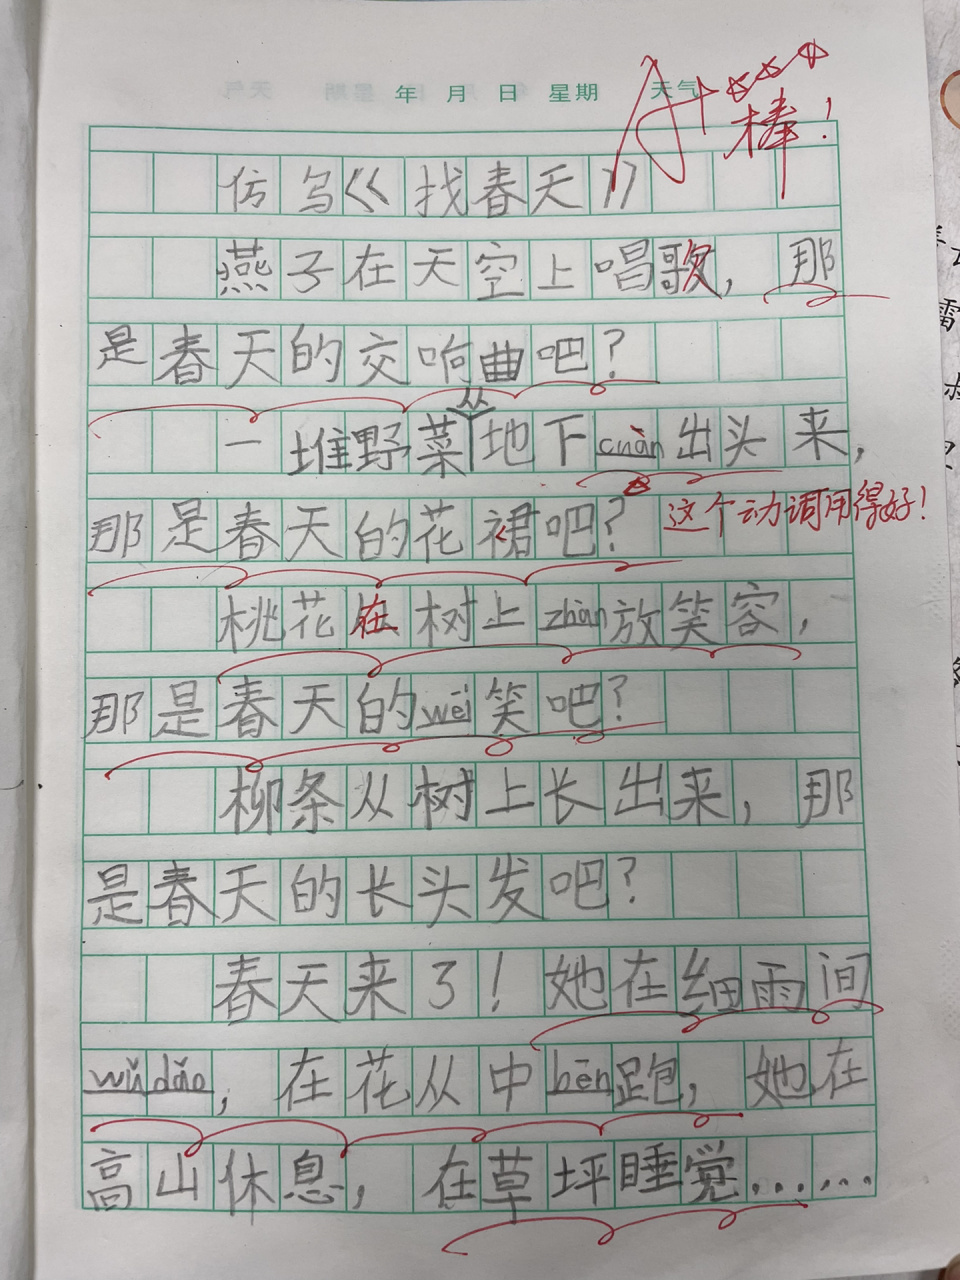 年 月 日 星期 天气
A+
棒!
仿写《找春天》
燕子在天空上唱歌,那
是春天的交响曲吧?
一堆野菜从地下cuàn出头来,
那是春天的花裙吧?
这个动调用得好!
桃花在树上zhàn放笑容,
那是春天的wēi笑吧?
柳条从树上长出来,那
是春天的长头发吧?
春天来了!她在细雨间
wǔdǎo,在花从中bēn跑,她在
高山休息,在草坪睡觉……